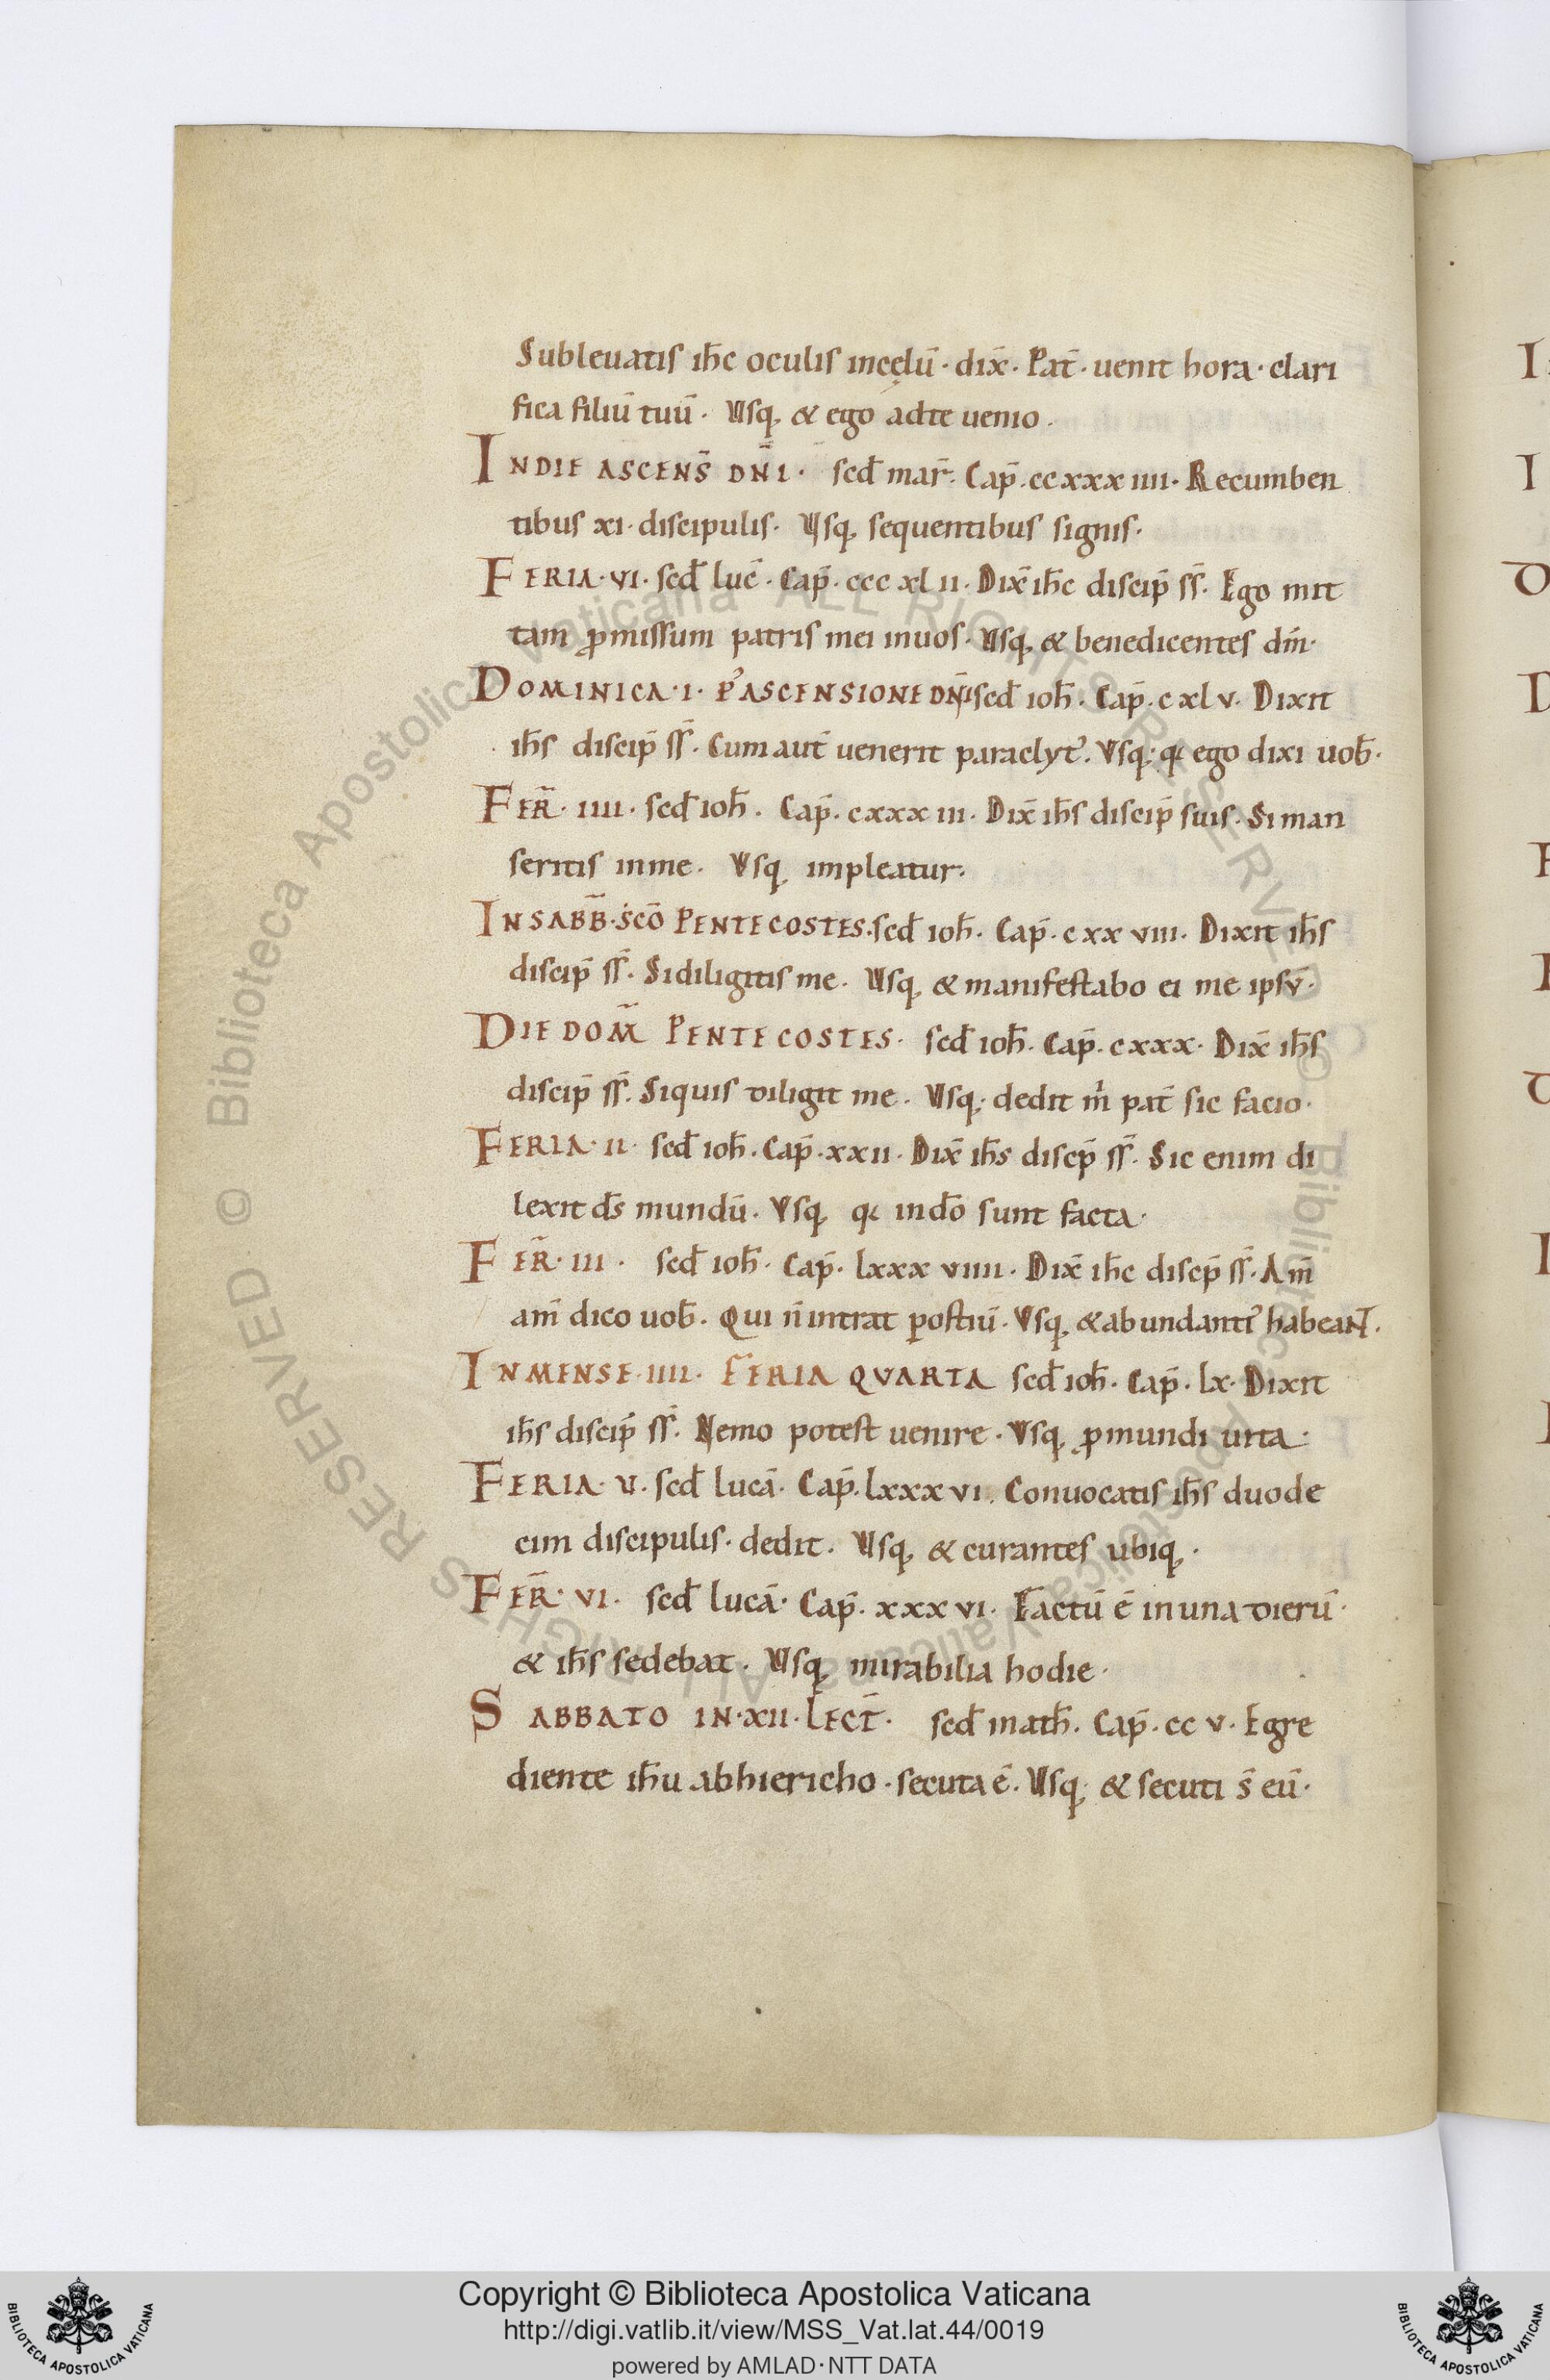 Subleuatis ih̄c oculis incęlū · dix̄ · Pat̄ · uenit hora · clari
fica filiū tuū · Usq; & ego adte uenio ·
INDIE ASCENS̄ DN̄I · scd̄ mar̄ · Cap̄ · ccxxxiiii · Recumben
tibus xi · discipulis · Usq; sequentibus signis ·
FERIA · VI · scd̄ luc̄ · Cap̄ · ccc xl ii · Dix̄ ih̄c discip̄ ss̄ · Ego mit
tam ꝓmissum patris mei inuos · Usq; & benedicentes dm̄ ·
DOMINICA · I · P' ASCENSIONE DN̄I scd̄ ioh̄ · Cap̄ · c xl v · Dixit
ih̄s discip̄ ss̄ · Cum aut̄ uenerit paraclyt' · Vsq; q; ego dixi uob̄ ·
FER̄ · IIII · scd̄ ioh̄ · Cap̄ · cxxx iii · Dix̄ ih̄s discip̄ suis · Si man
seritis inme · Vsq; impleatur ·
INSABB̄ · SC̄O PENTECOSTES · scd̄ ioh̄ · Cap̄ · c xx viii · Dixit ih̄s
discip̄ ss̄ · Sidiligitis me · Usq; & manifestabo ei me ipsv̄ ·
DIE DOM̄ PENTECOSTES · scd̄ ioh̄ · Cap̄ · cxxx · Dix̄ ih̄s
discip̄ ss̄ · Siquis diligit me · Usq; dedit m̄ pat̄ sic facio ·
FERIA · II · scd̄ ioh̄ · Cap̄ · xxii · Dix̄ ih̄s discp̄ ss̄ · Sic enim di
lexit ds̄ mundū · Vsq; q; indō sunt facta ·
FER̄ · III · scd̄ ioh̄ · Cap̄ · lxxx viiii · Dix̄ ih̄c discp̄ ss̄ · Am̄
am̄ dico uob̄ · Qui n̄ intrat ꝑostiū · Vsq; & abundant' habeaNT ·
INMENSE · IIII · FERIA QVARTA scd̄ ioh̄ · Cap̄ · lx · Dixit
ih̄s discip̄ ss̄ · Nemo potest uenire · Vsq; ꝓmundi uita ·
FERIA · V · scd̄ lucā · Cap̄ · lxxx vi · Conuocatis ih̄s duode
cim discipulis · dedit · Usq; & curantes ubiq; ·
FER̄ · VI · scd̄ lucā · Cap̄ · xxx vi · Factū ē in una dierū ·
& ih̄s sedebat · Usq; mirabilia hodie ·
SABBATO IN · XII · LECT̄ · scd̄ math̄ · Cap̄ · cc v · Egre
diente ih̄u abhiericho · secuta ē · Usq; & secuti s̄ eū ·
© Biblioteca Apostolica Vaticana ALL RIGHTS RESERVED
© Biblioteca Apostolica Vaticana ALL RIGHTS RESERVED
Copyright © Biblioteca Apostolica Vaticana
http://digi.vatlib.it/view/MSS_Vat.lat.44/0019
powered by AMLAD·NTT DATA
BIBLIOTECA APOSTOLICA VATICANA
BIBLIOTECA APOSTOLICA VATICANA